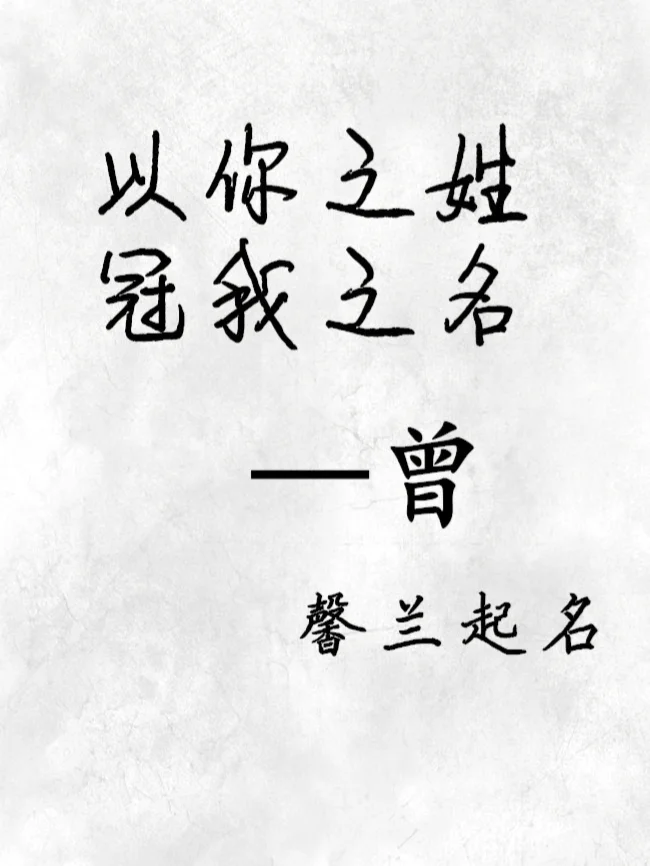 以你之姓
冠我之名
—曾
馨兰起名